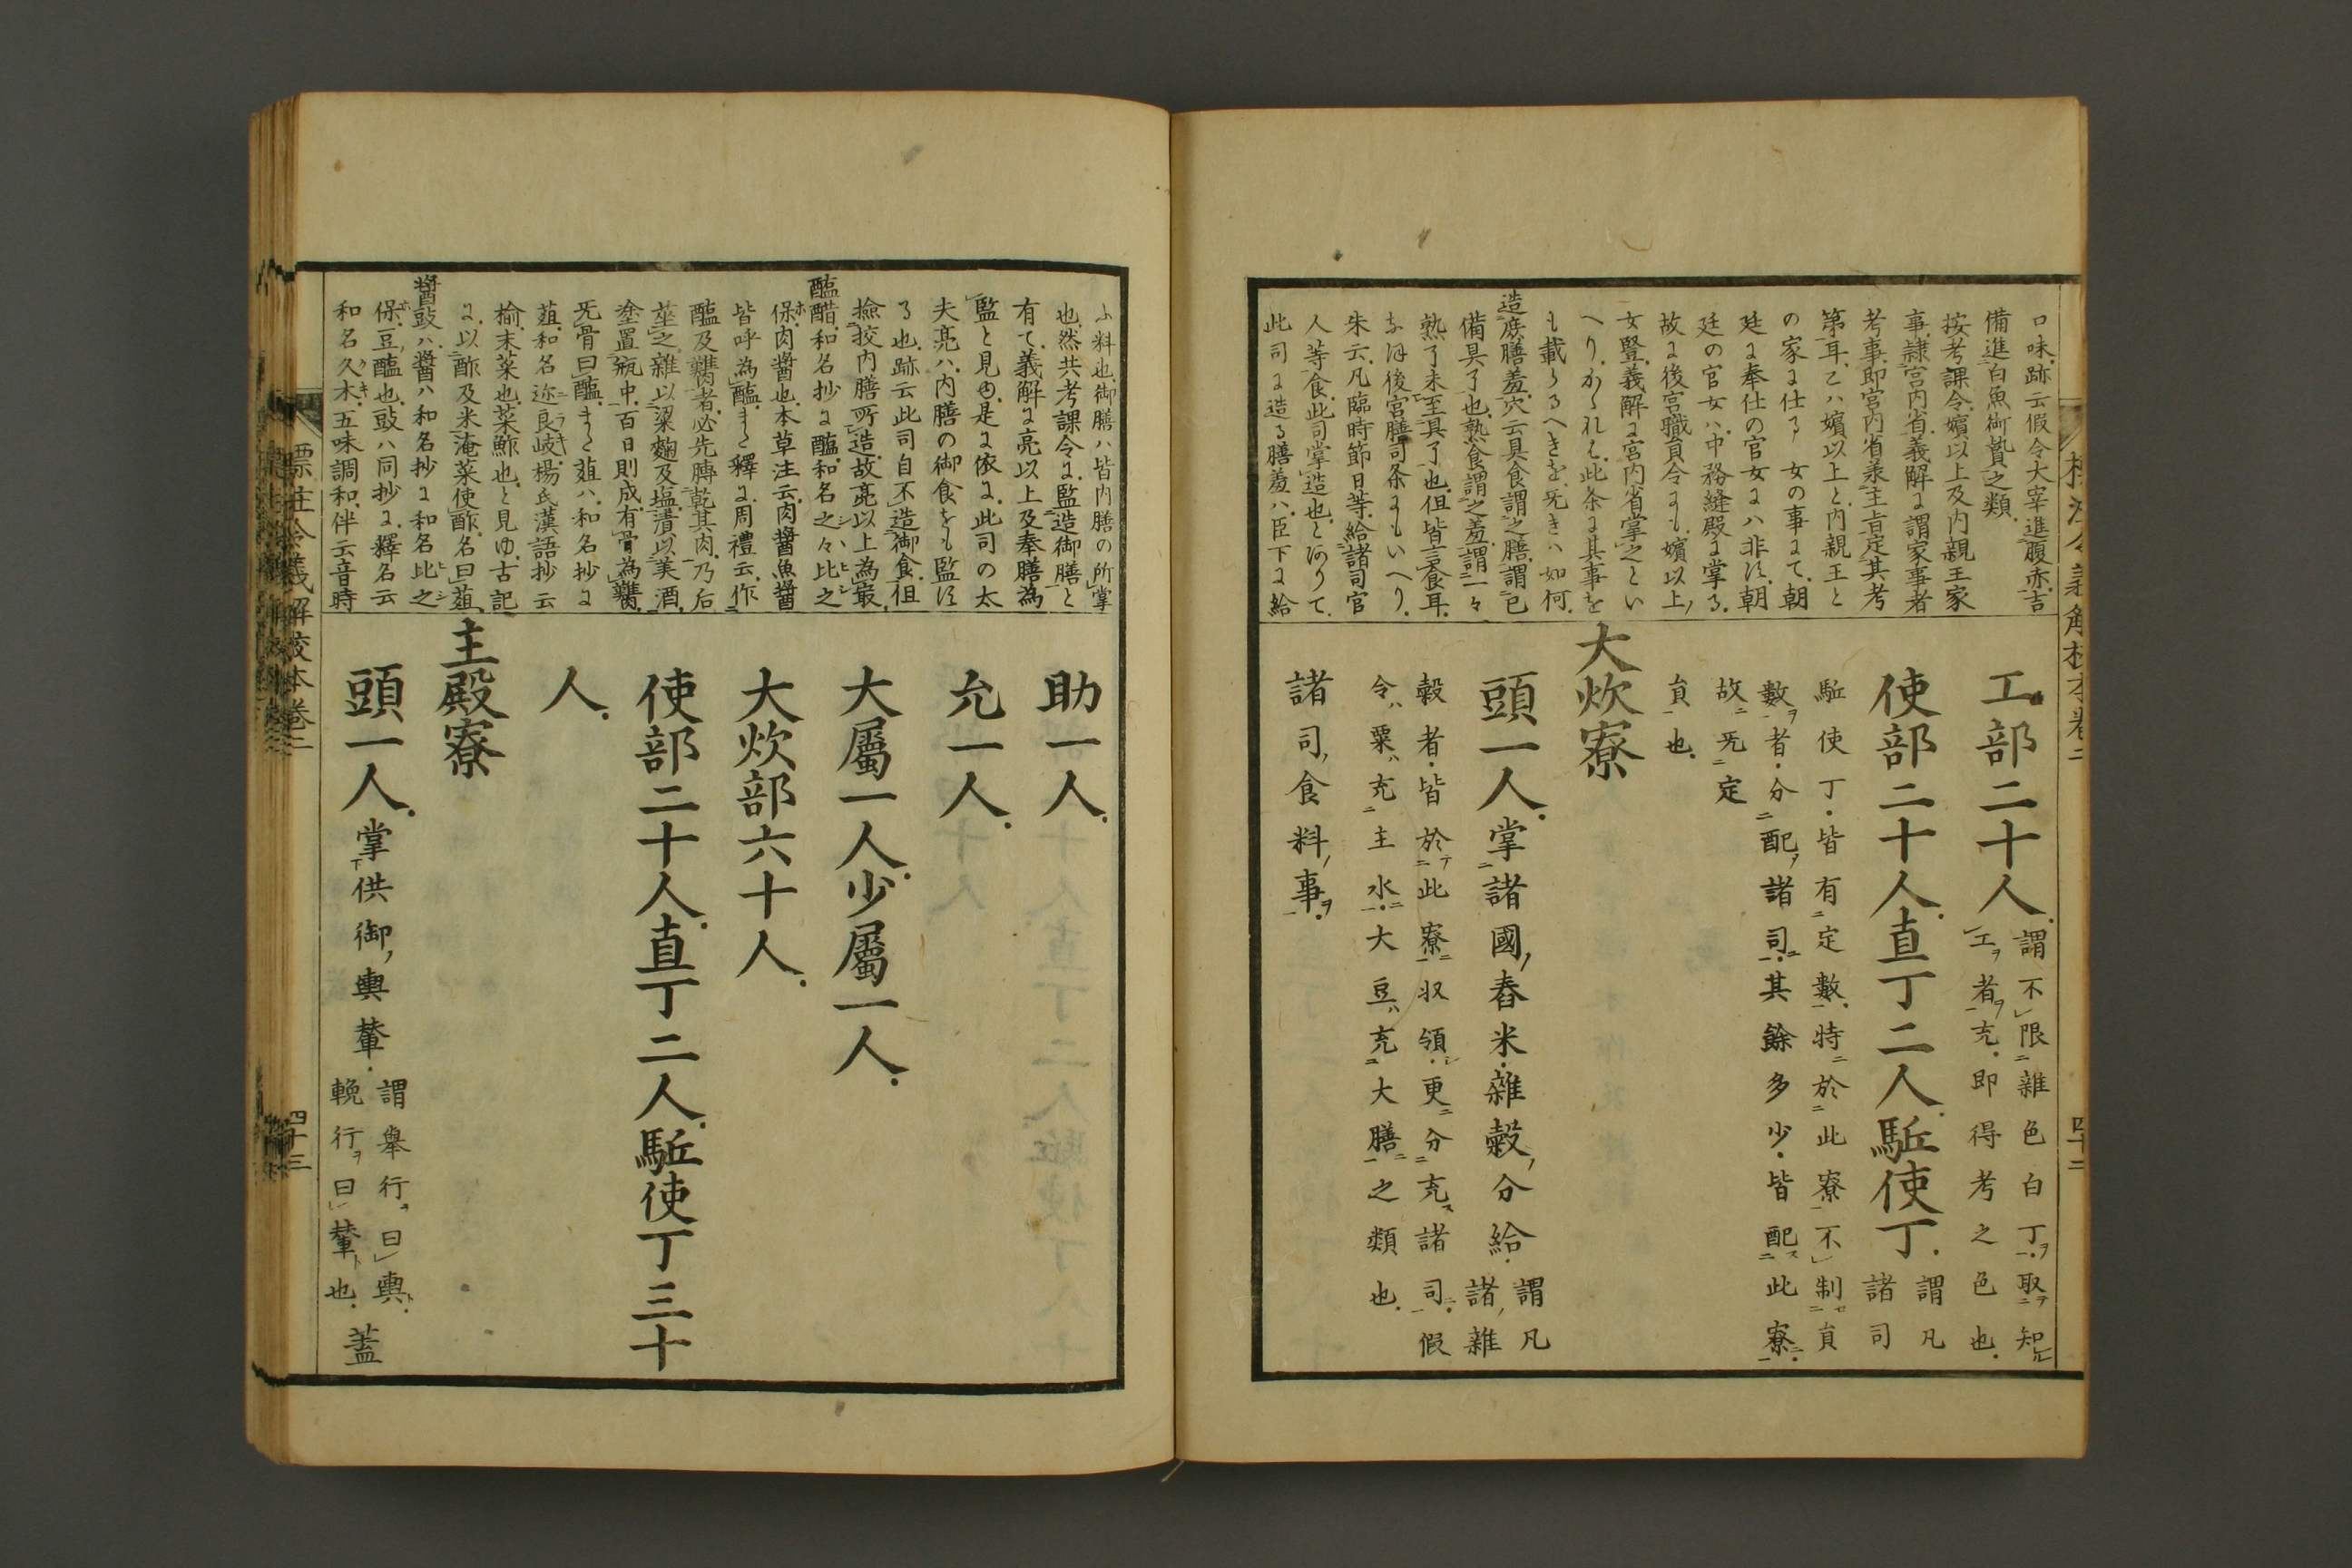 口味跡云假令大宰進腹赤吉
備進白魚御贄之類
按考課令嬪以上及内親王家
事隷宮内省義解ニ謂家事者
考事即宮内省兼主肯定其考
第耳トハ嬪以上と内親王と
の家ニ仕る女の事ニて朝
廷ニ奉仕の官女ニハ非ス朝
廷の官女ハ中務縫殿ニ掌る
故ニ後宮職員令にも嬪以上
女豎義解ニ宮内省掌之とい
へりかゝれハ此条ニ其事を
も載らるへきを旡きハ如何
造庶膳羞穴云具食謂之膳謂已
備具了也熟食謂之羞謂一々
熟了未至具了也但皆言養耳
なほ後宮膳司条にもいへり
朱云凡臨時節日等給諸司官
人等食此司掌造也と何りて
此司ニ造る膳羞ハ臣下ニ給
工部二十人謂不限雜色白丁取知
工者充即得考之色也
使部二十人直丁二人駈使丁謂凡
諸司
駈使丁皆有定數特於此寮不制員
數者分配諸司其餘多少皆配此寮
故旡定
員也
大炊寮
頭一人掌諸國舂米雜穀分給謂凡
諸雜
穀者皆於此寮収領更分充諸司假
令粟充主水大豆充大膳之類也
諸司食料事
ふ料也御膳ハ皆内膳の所掌
也然共考課令ニ監造御膳と
有て義解ニ亮以上及奉膳為
監と見ゆ是ニ依ニ此司の太
夫亮ハ内膳の御食をも監ス
る也跡云此司自不造御食但
撿挍内膳所造故亮以上為最
醢醋和名抄ニ醢和名之々比之
保肉醬也本草注云肉醬魚醬
皆呼為醢また釋ニ周禮云作
醢及臡者必先膊乾其肉乃后
莝之雜以粱麴及塩漬以美酒
塗置瓶中百日則成有骨為臡
旡骨曰醢また葅ハ和名抄ニ
葅和名迩良岐楊氏漢語抄云
楡末菜也菜鮓也と見ゆ古記
ニ以酢及米淹菜使酢名曰葅
醬豉ハ醬ハ和名抄ニ和名比之
保豆醢也豉ハ同抄ニ釋名云
和名久木五味調和伴云音時
助一人
允一人
大屬一人少屬一人
大炊部六十人
使部二十人直丁二人駈使丁三十
人
主殿寮
頭一人掌供御輿輦謂舉行曰輿
輓行曰輦也蓋
標注令義解校本卷二
四十三
四十二